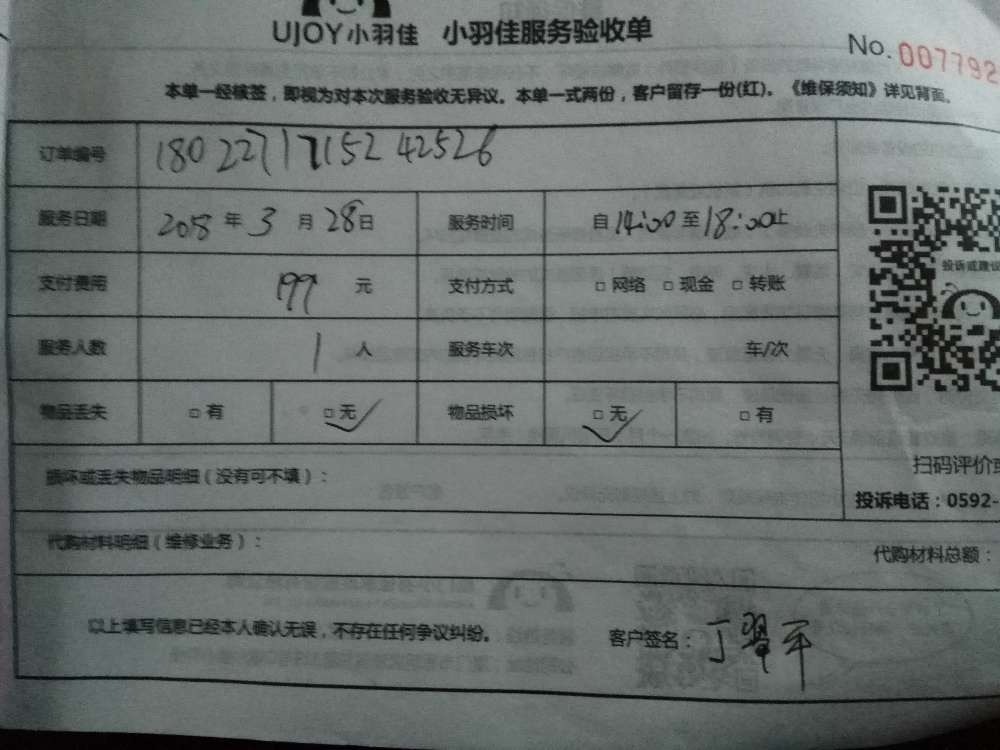 UJOY小羽佳 小羽佳服务验收单
No. 007792
本单一经核签，即视为对本次服务验收无异议。本单一式两份，客户留存一份(红)。《维保须知》详见背面。
订单编号 180227171524 2526
服务日期 2018 年 3 月 28 日 服务时间 自 14:00 至 18:00 止
支付费用 199 元 支付方式 □ 网络 □ 现金 □ 转账
投诉或建议
服务人数 1 人 服务车次 车/次
物品丢失 □ 有 □ 无 ✓ 物品损坏 □ 无 ✓ □ 有
扫码评价或
损坏或丢失物品明细（没有可不填）：
投诉电话：0592-
代购材料明细（维修业务）：
代购材料总额：
以上填写信息已经本人确认无误，不存在任何争议纠纷。 客户签名：丁翠平